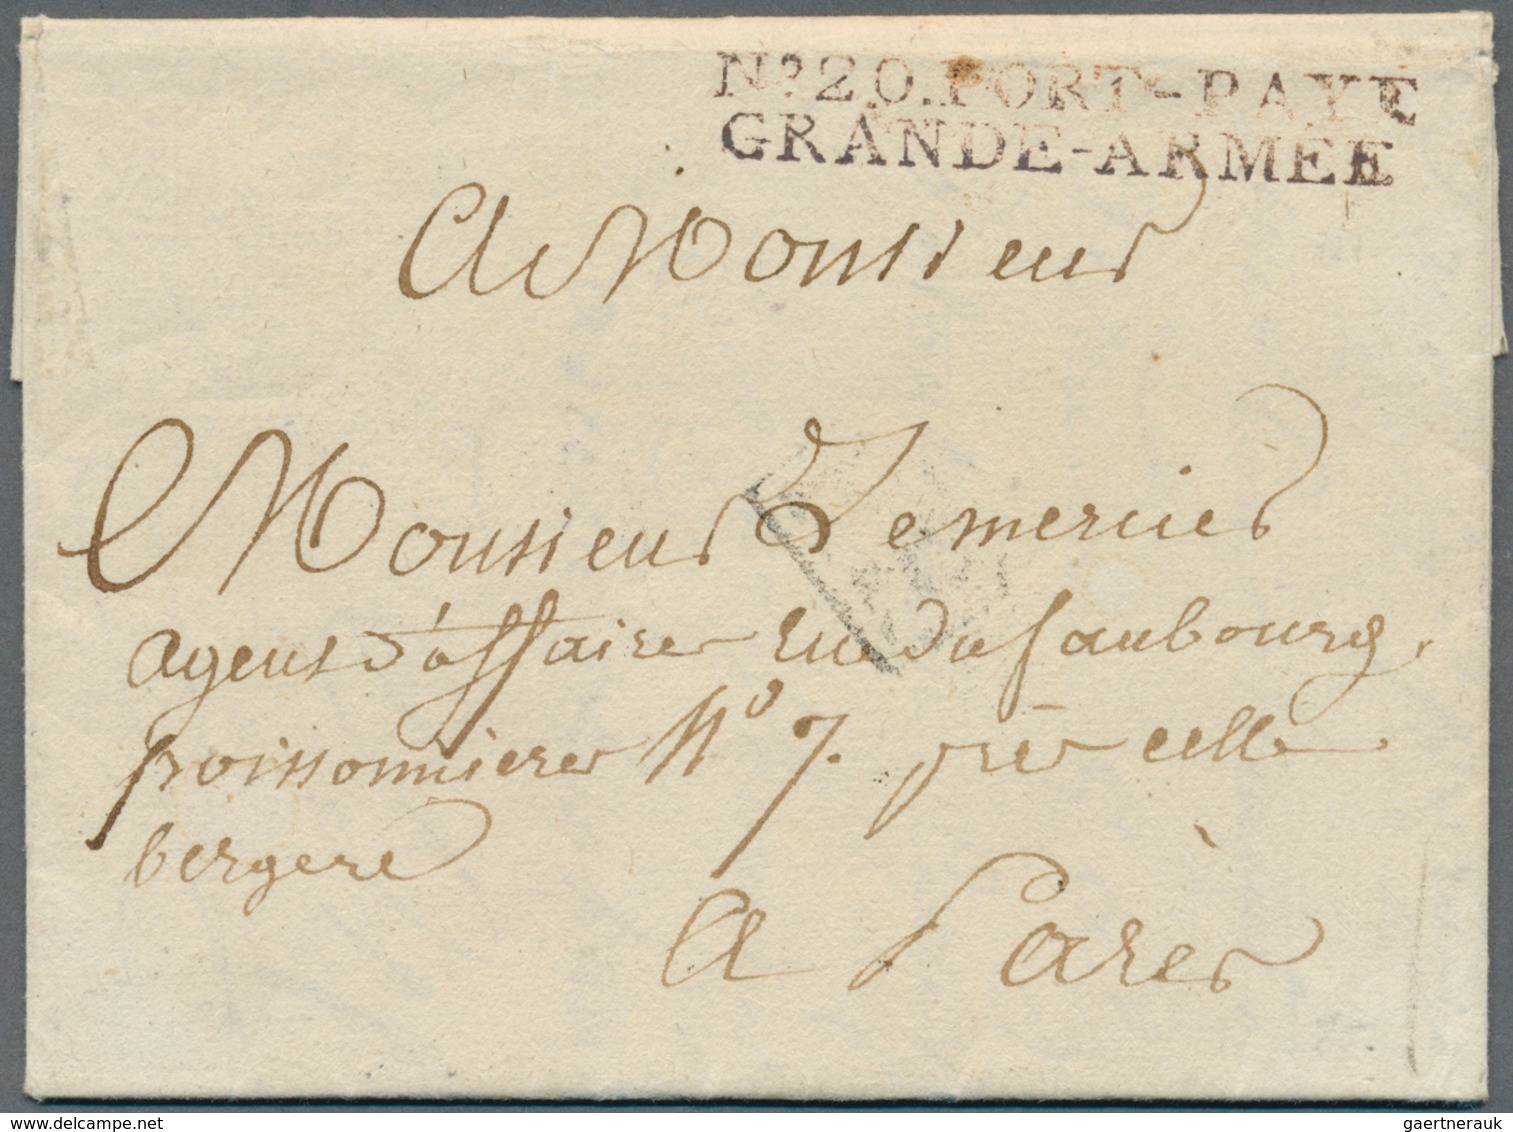 Nº 20. PORT-PAYE
GRANDE-ARMÉE
A Monsieur
Monsieur Lemercier
agent d'affaires rue du faubourg
poissonniere Nº 7. près celle
bergere
A Paris
gaertnerauk